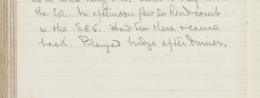 the Co. In afternoon flew to Rendcomb
in the SE5. Had tea there & came
back. Played bridge after dinner.